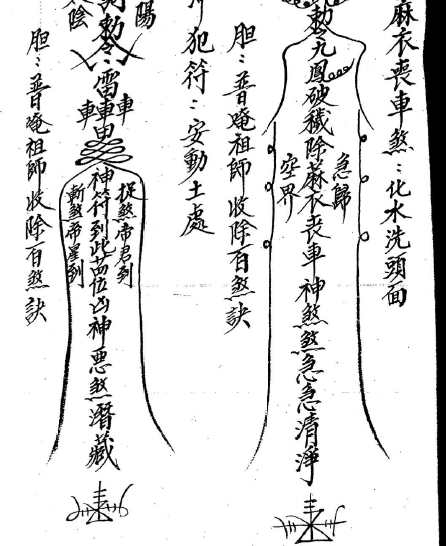 麻衣喪車煞：化水洗頭面
敕令九鳳破穢除麻衣喪車神煞煞急急清淨
急歸
空界
胆：普唵祖師收除百煞訣
犯符：安動土處
陽
敕令：雷
車車車
神符到此苗位凶神惡煞潛藏
捉煞帝君到
斬煞帝星到
陰
胆：普唵祖師收除百煞訣